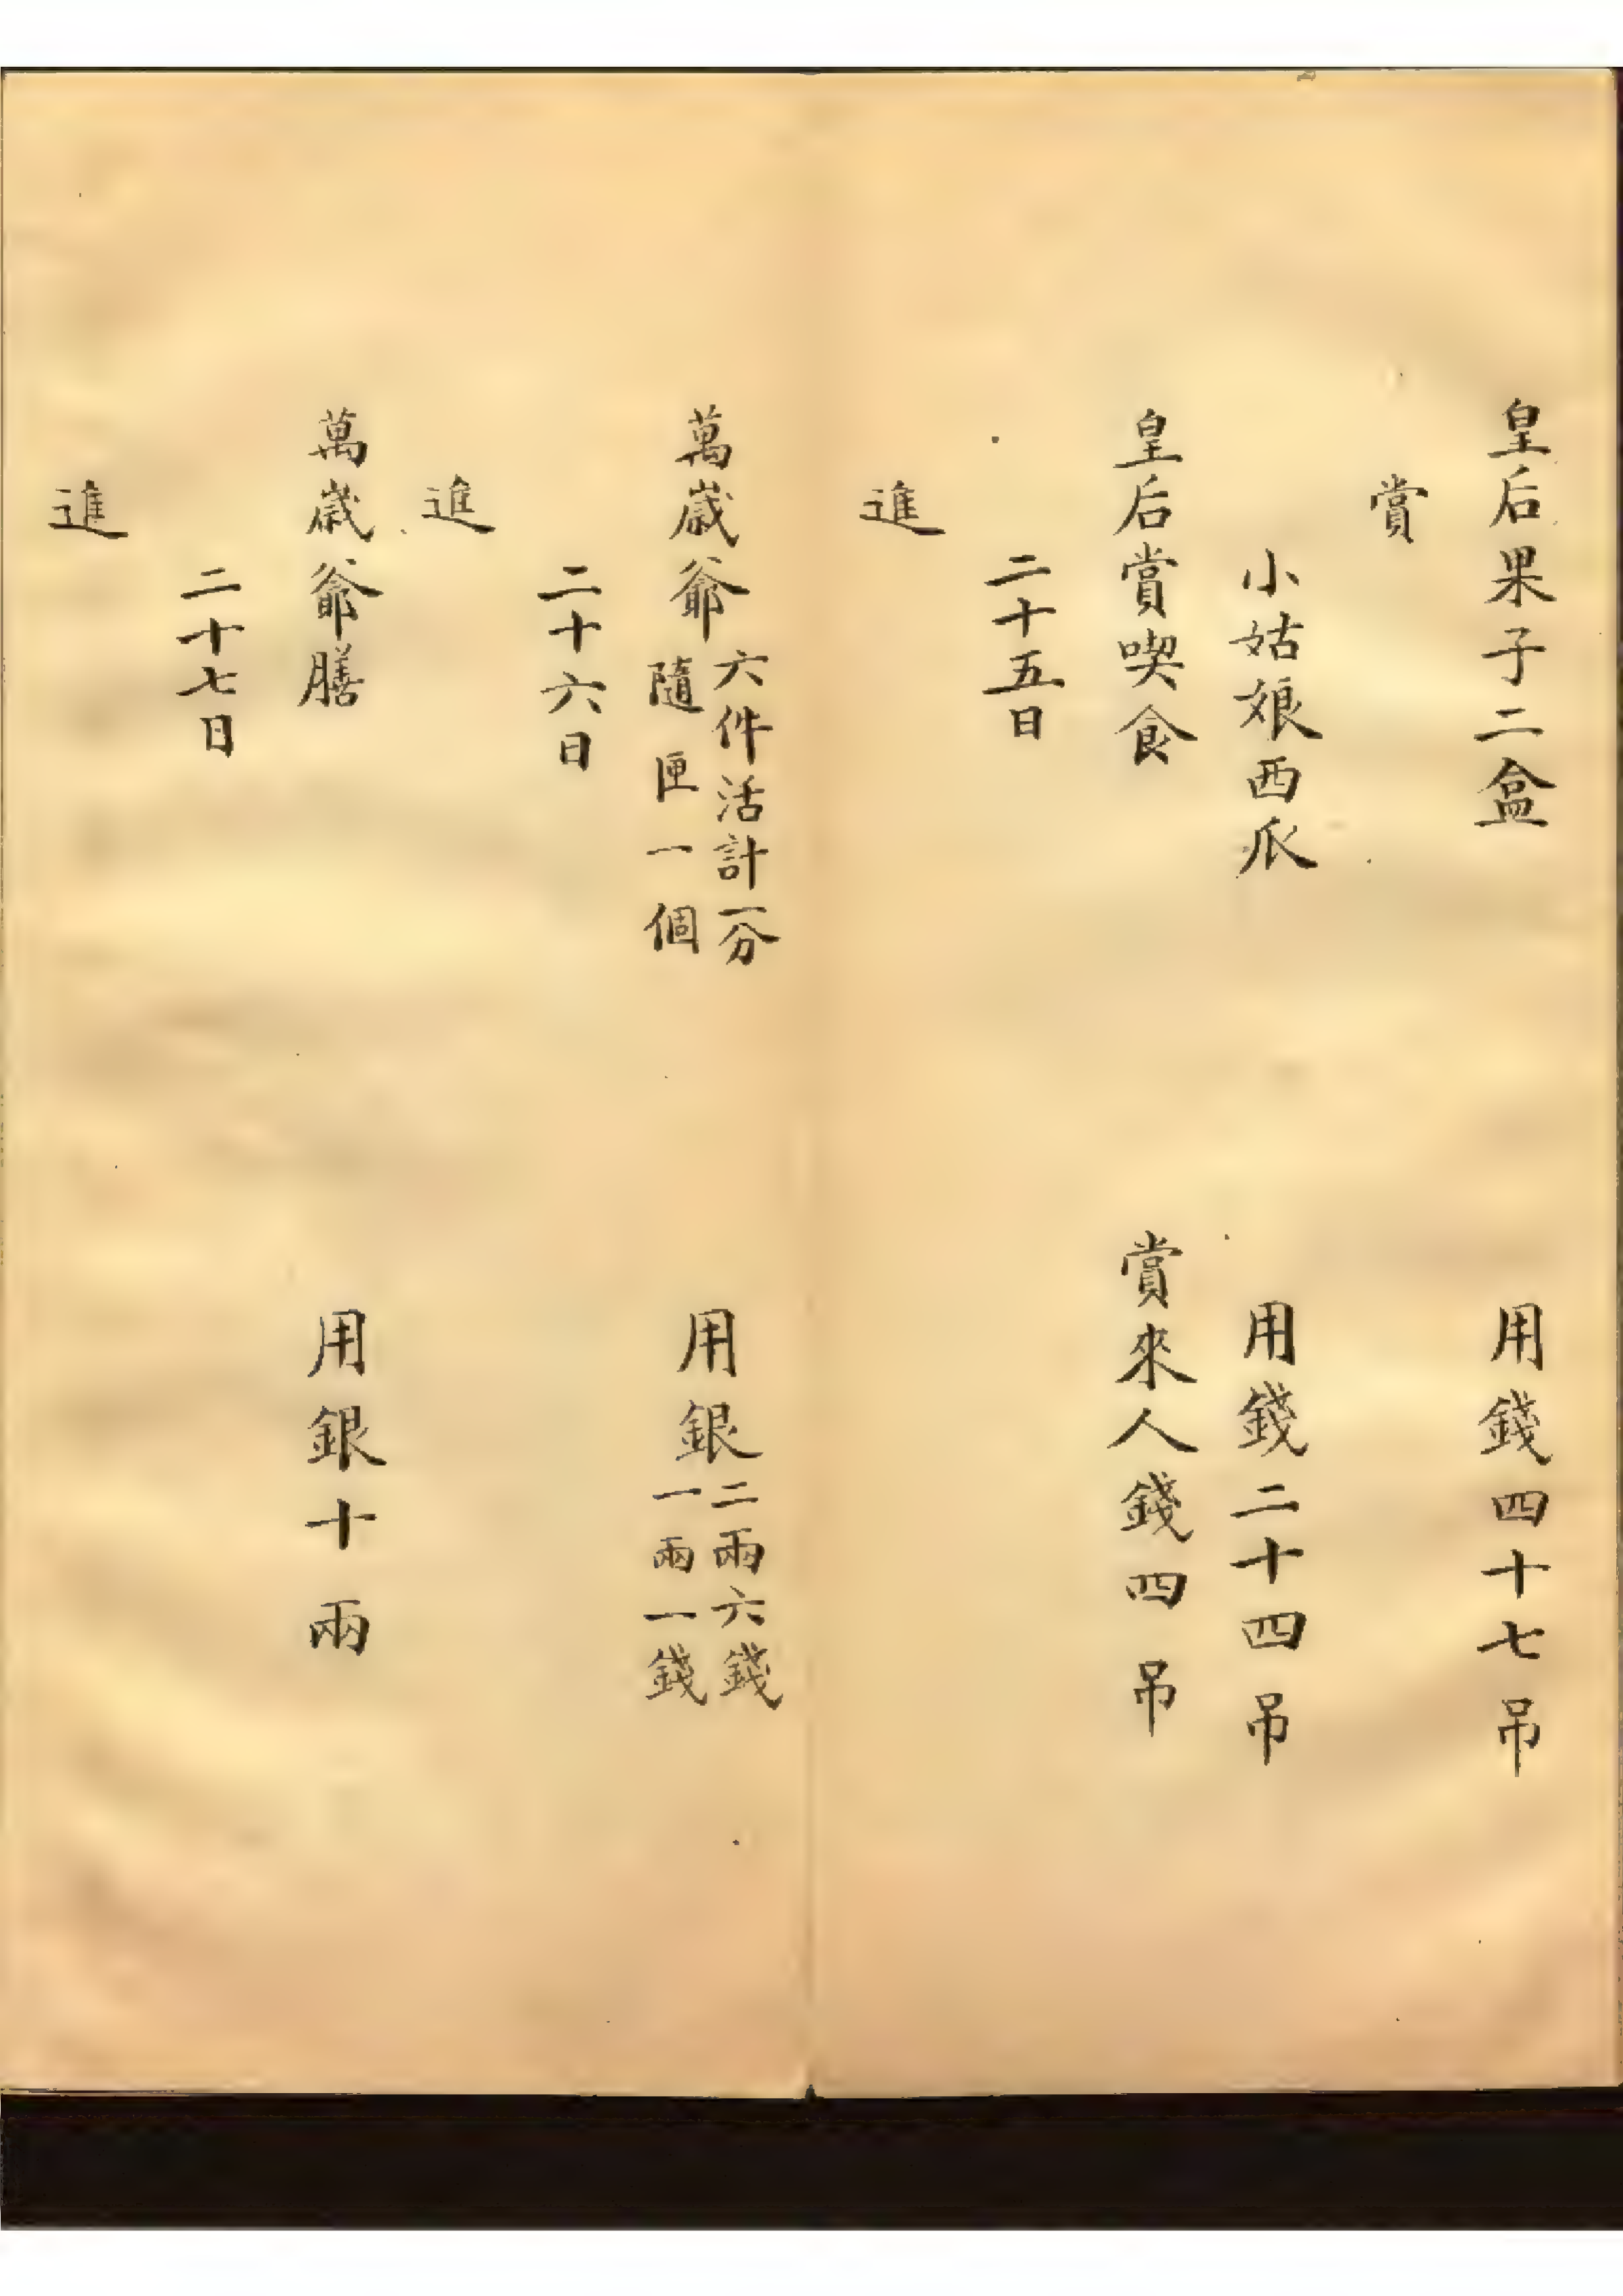 皇后果子二盒 用錢四十七吊
賞
小姑娘西瓜 用錢二十四吊
皇后賞喫食 賞來人錢四吊
二十五日
進
萬歲爺 六件活計一分 隨匣一個 用銀 二兩六錢 一兩一錢
二十六日
進
萬歲爺膳 用銀十兩
二十七日
進